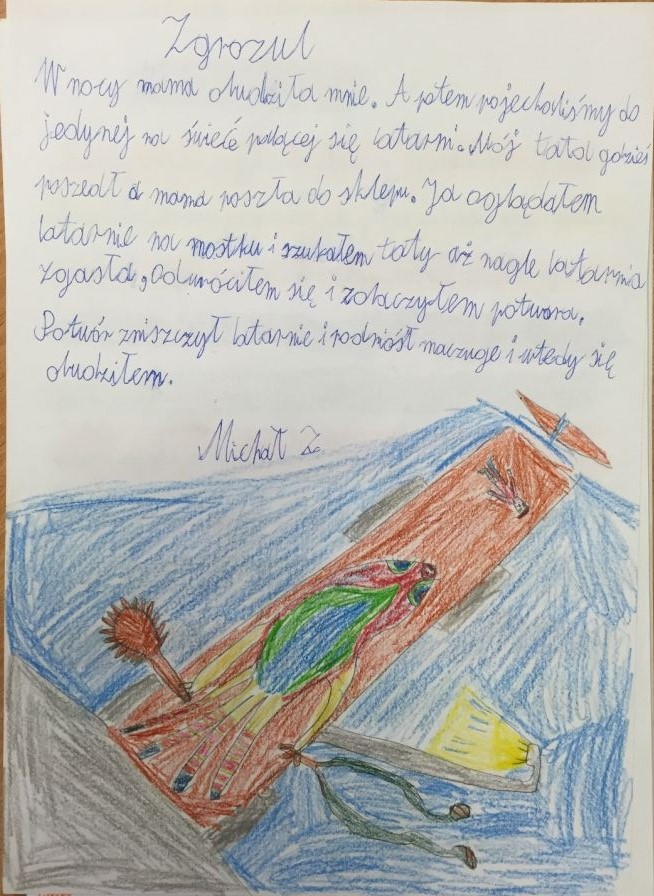 Zgrozul
W nocy mama obudziła mnie. A potem pojechaliśmy do
jedynej na świecie palącej się latarni. Mój tata gdzieś
poszedł a mama poszła do sklepu. Ja oglądałem
latarnie na mostku i szukałem taty aż nagle latarnia
zgasła, odwróciłem się i zobaczyłem potwora.
Potwór zniszczył latarnie i podniósł maczuge i wtedy się
obudziłem.
Michał Z.